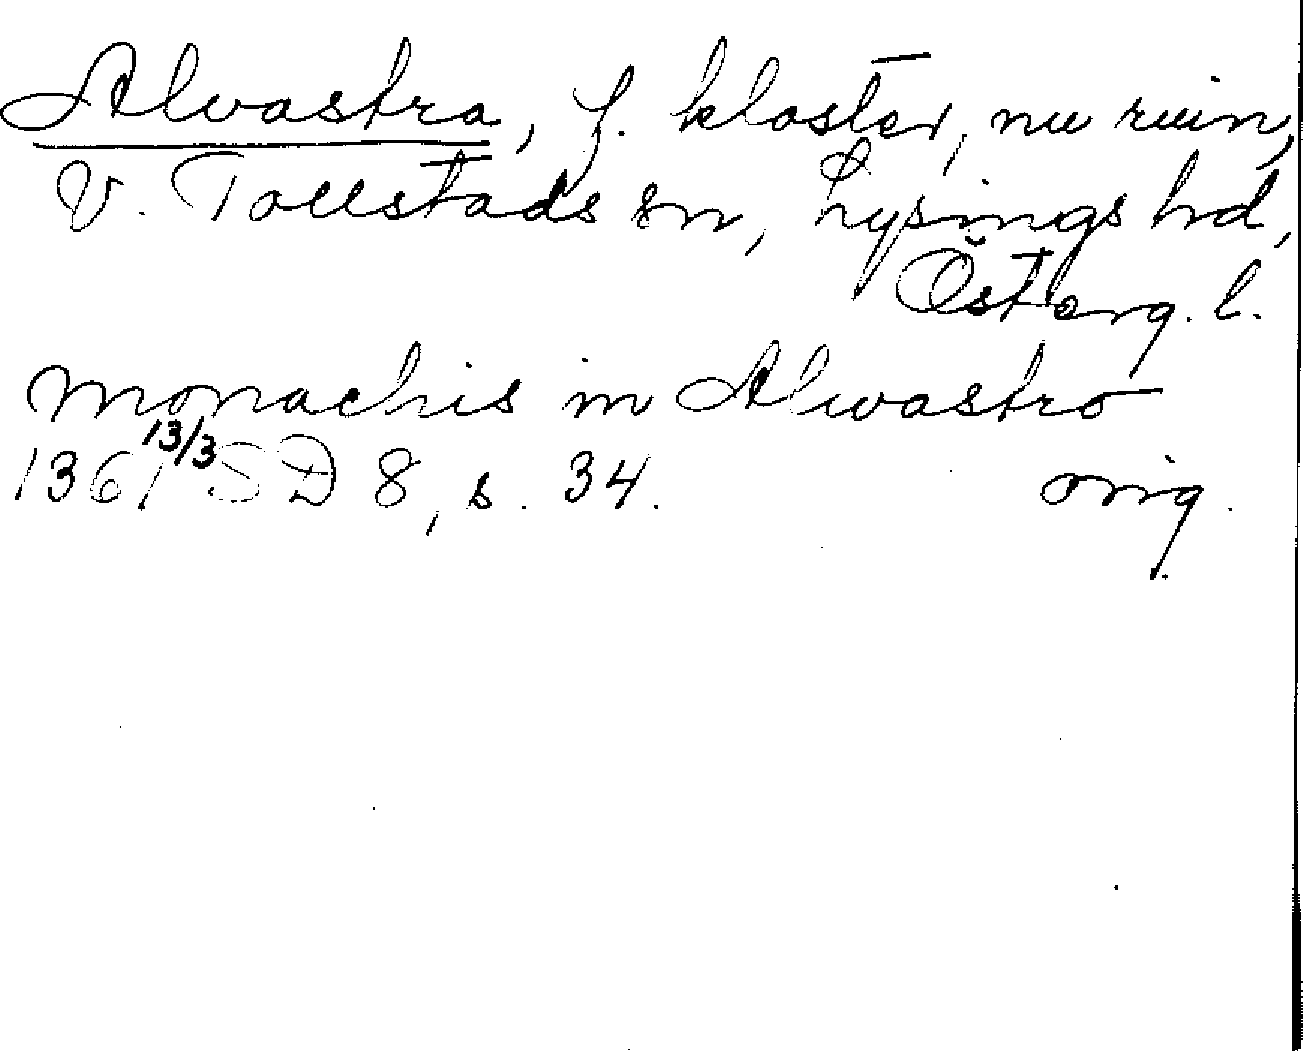 Alvastra, f. kloster, nu ruin,
V. Tollstads sn, Lysings hd,
Österg. l.
monachis in Alwastro
1361 13/3 SD 8, s. 34. orig.